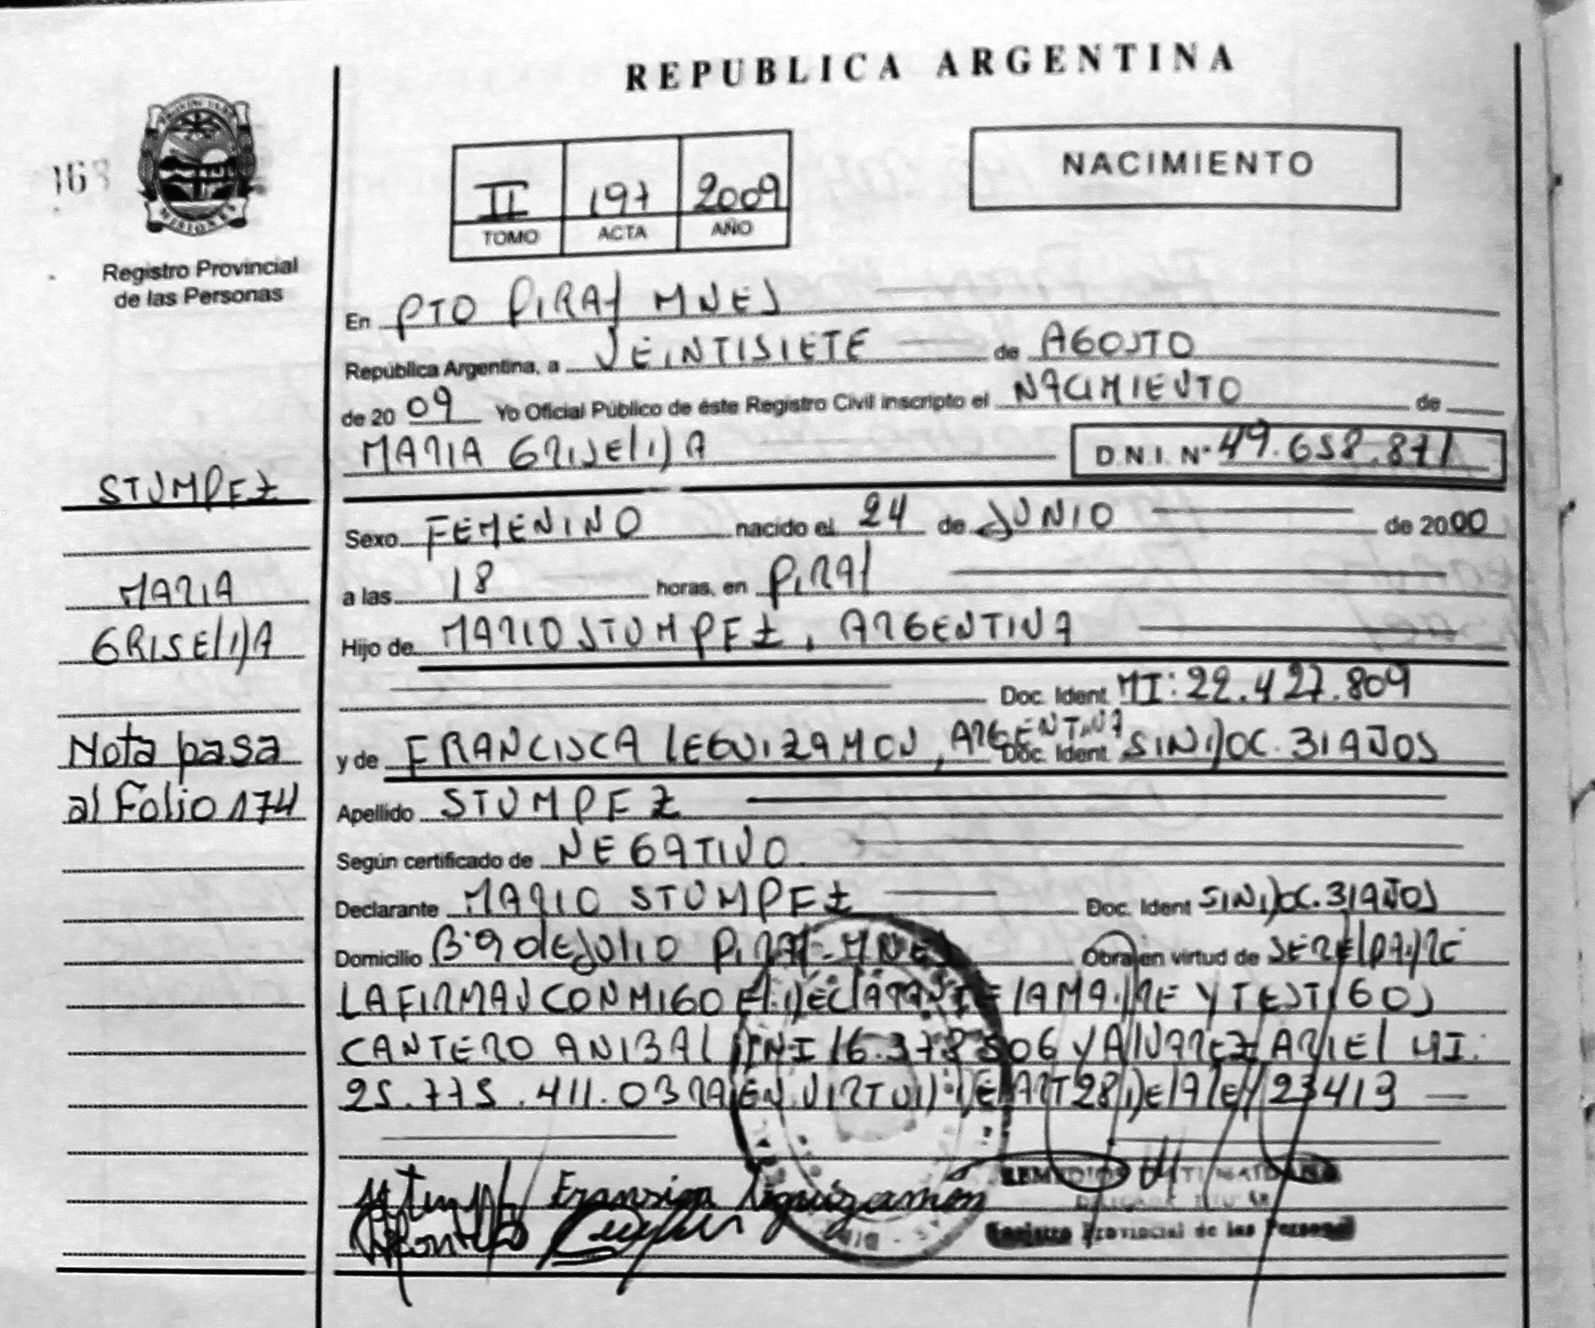 REPUBLICA ARGENTINA
NACIMIENTO
II 197 2009
TOMO ACTA AÑO
168
MISIONES
Registro Provincial
de las Personas
En PTO PIRAY MNES
República Argentina, a VEINTISIETE de AGOSTO
de 2009 Yo Oficial Público de éste Registro Civil inscripto el NACIMIENTO de
MARIA GRISELDA D.N.I. Nº 49.658.871
STUMPFZ
Sexo FEMENINO nacido el 24 de JUNIO de 2000
MARIA
a las 18 horas, en PIRAY
GRISELDA
Hijo de MARIO STUMPFZ, ARGENTINA
Doc. Ident MI: 22.427.809
Nota pasa
y de FRANCISCA LEGUIZAMON, ARGENTINA Doc. Ident SIN DOC. 31 AÑOS
al Folio 174
Apellido STUMPFZ
Según certificado de NEGATIVO
Declarante MARIO STUMPFZ Doc. Ident SIN DOC. 31 AÑOS
Domicilio Bº 9 de JULIO PIRAY-MNES Obra en virtud de SER EL PADRE
LA FIRMAS CONMIGO EL DECLARANTE LA MADRE Y TESTIGOS
CANTERO ANIBAL DNI 16.378506 Y ALVAREZ ARIEL MI:
25.775.411. OBRA EN VIRTUD DE ART 28 DE LA LEY 23413
Fransica Leguizamón
REMEDIOS
Registro Provincial de las Personas